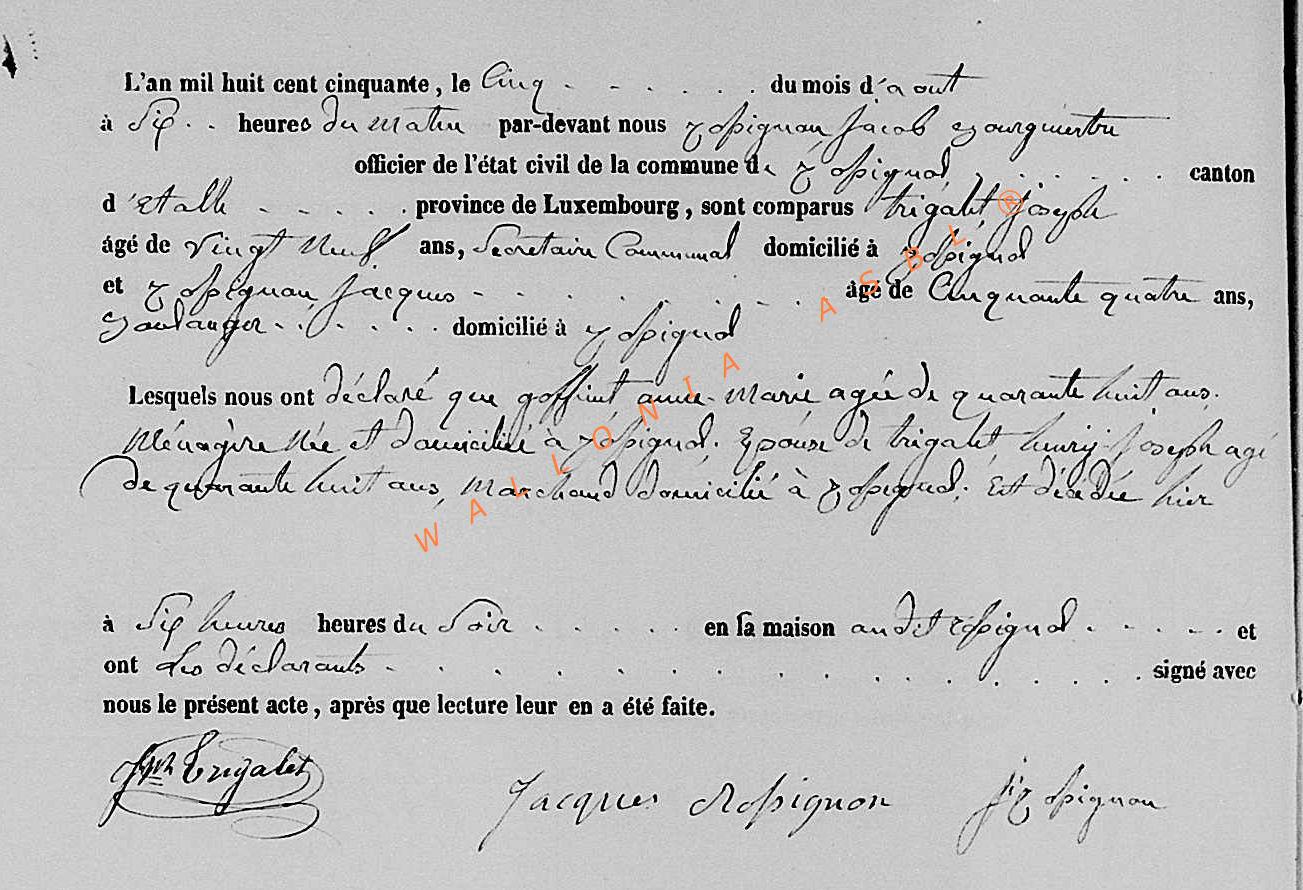 L'an mil huit cent cinquante, le Cinq . . . . . . du mois d'aout
à Six . . heures du matin par-devant nous Rossignon Jacob Bourgmestre
officier de l'état civil de la commune de Rossignol . . . . . . canton
d'Etalle . . . . . province de Luxembourg, sont comparus trigalet Joseph
âgé de Vingt Neuf ans, Secretaire Communal domicilié à Rossignol
et Rossignon Jacques . . . . . . . . âgé de Cinquante quatre ans,
Boulanger . . . . . . domicilié à Rossignol
Lesquels nous ont déclaré que goffint anne-Marie agée de quarante huit ans.
Ménagère Née et domiciliée à Rossignol. Epouse de trigalet, henry-Joseph agé
de quarante huit ans, Marchand domicilié à Rossignol. Est décédée hier
à Six heures heures du Soir . . . . . en sa maison audit Rossignol . . . . . et
ont Les déclarants . . . . . . . . . . . . . signé avec
nous le présent acte, après que lecture leur en a été faite.
Jph Trigalet Jacques Rossignon J Rossignon
WALLONIA ASBL ®